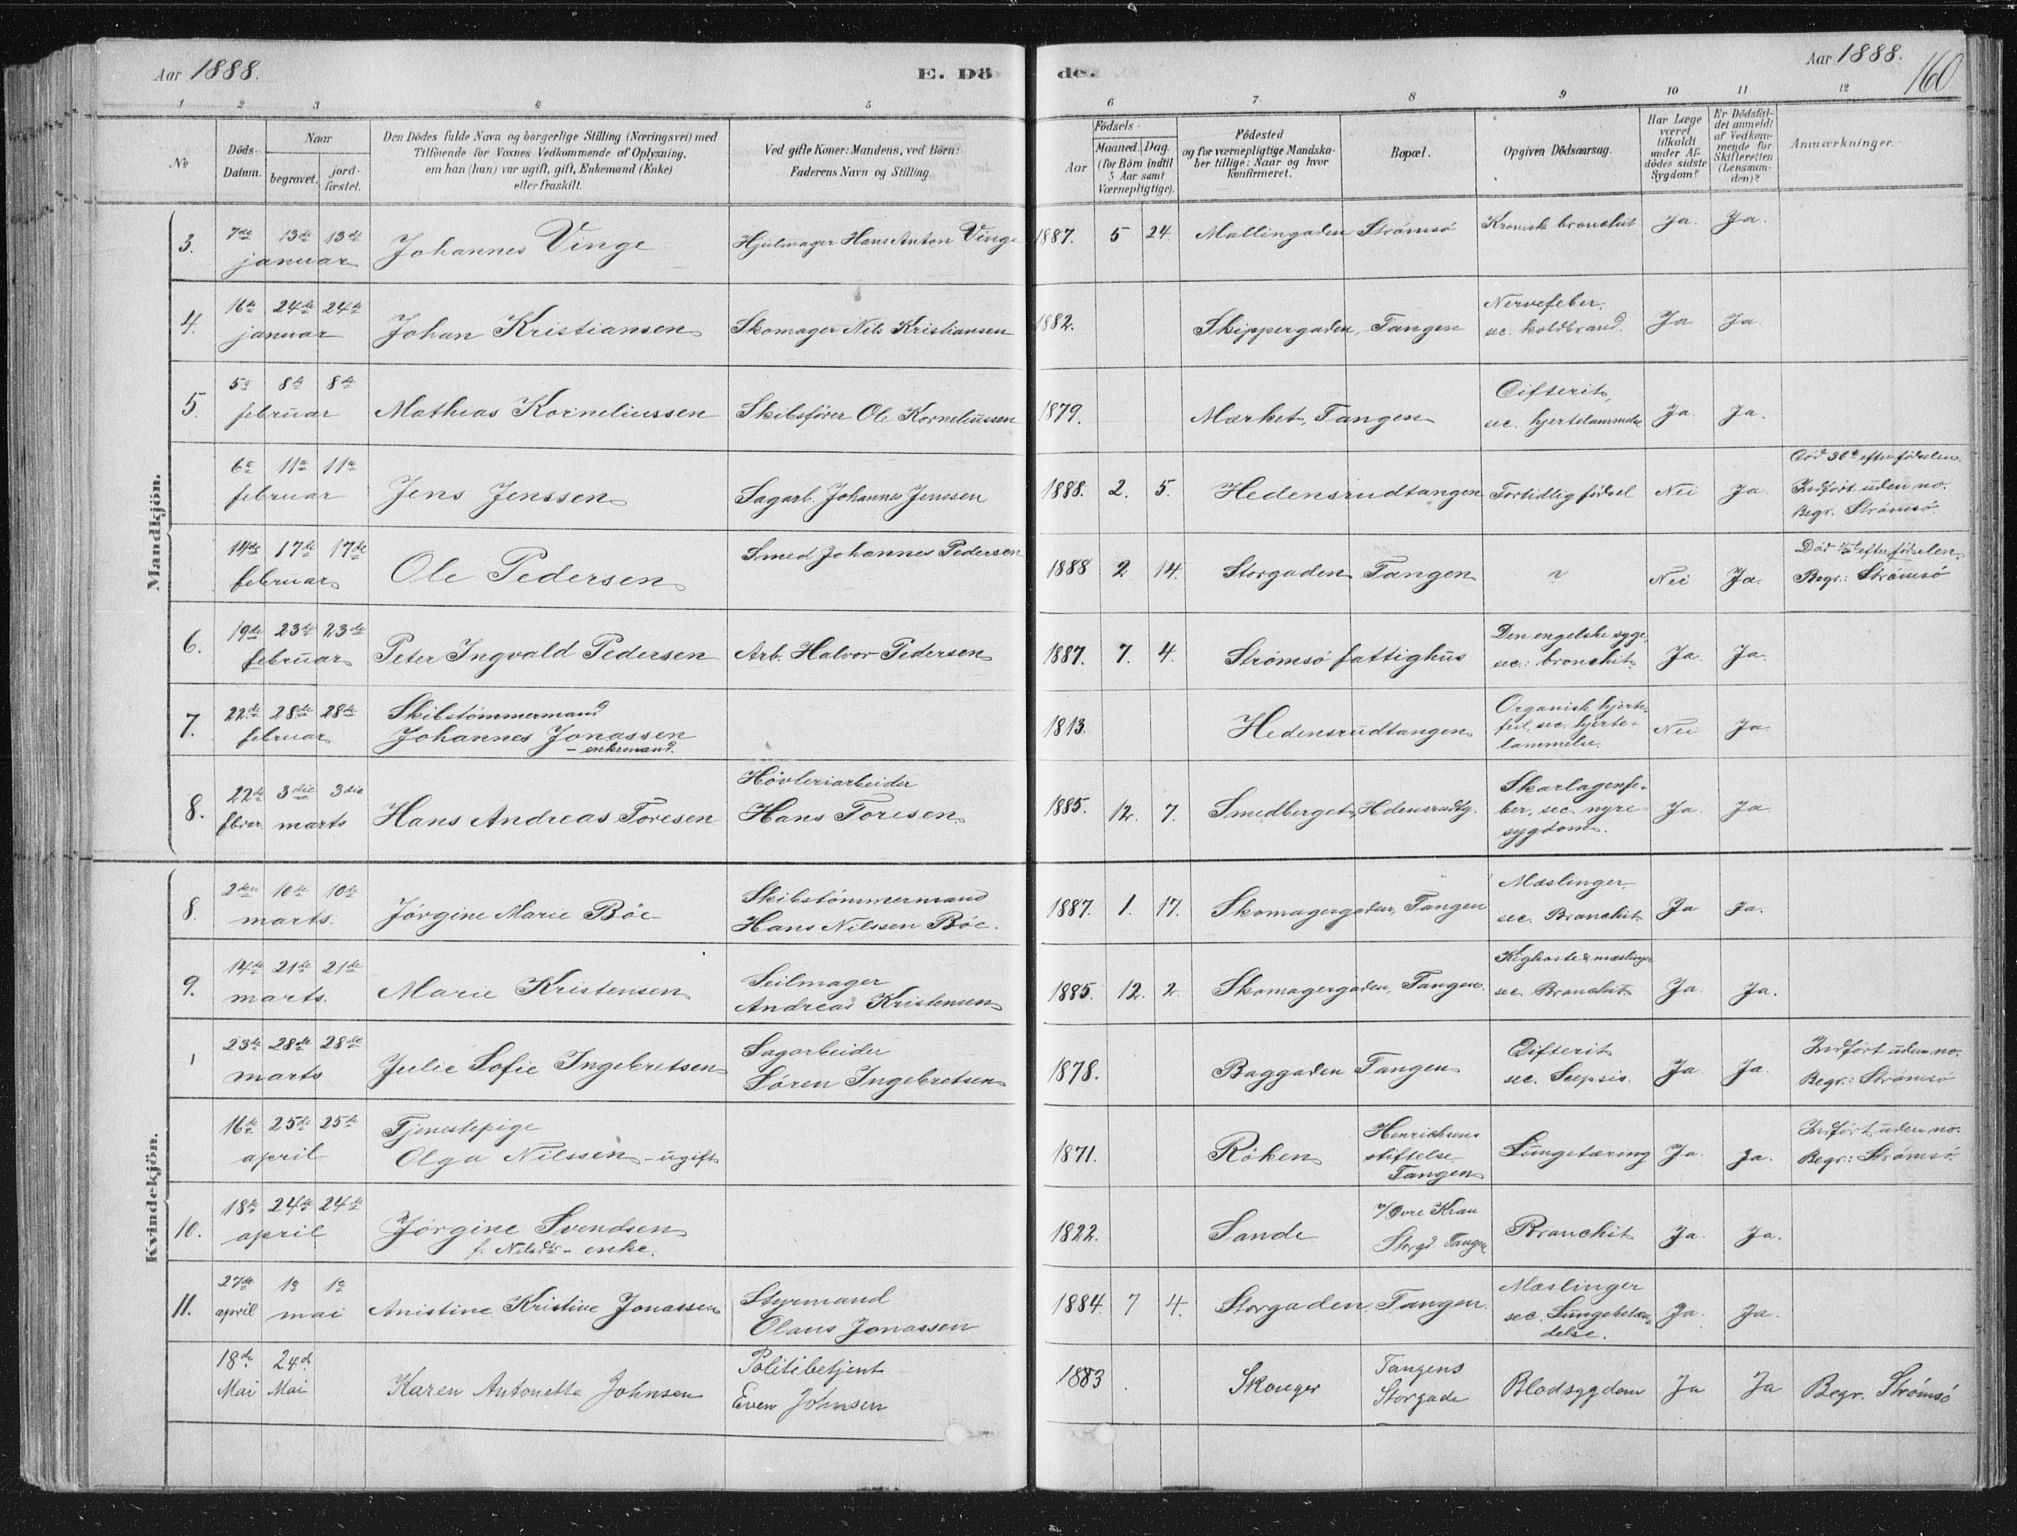 Aar 1888.
E. Dö
de.
Aar 1888.
160
1 2 3 4 5 6 7 8 9 10 11 12
No
Döds-Datum.
Naar
begravet.
jord-fæstet.
Den Dödes fulde Navn og borgerlige Stilling (Næringsvei) med
Tilföiende for Voxnes Vedkommende af Oplysning,
om han (hun) var ugift, gift, Enkemand (Enke)
eller fraskilt.
Ved gifte Koner: Mandens, ved Börn:
Faderens Navn og Stilling.
Födsels-
Aar
Maaned. Dag.
(for Börn indtil
5 Aar samt
Værnepligtige).
Födested
og for værnepligtige Mandska-
ber tillige: Naar og hvor
konfirmeret.
Bopæl.
Opgiven Dödsaarsag.
Har Læge
været
tilkaldt
under Af-
dödes sidste
Sygdom?
Er Dödsfal-
det anmeldt
af Vedkom-
mende for
Skifteretten
(Lensman-
den)?
Anmærkninger.
Mandkjön.
3. 7de 13de 13de januar Johannes Vinge Hjulmager Hans Anton Vinge 1887. 5 24. Mallingaden Strømsø Kronisk bronchit Ja. Ja.
4. 16de 24de 24de januar Johan Kristiansen Skomager Nils Kristiansen 1882. Skippergaden, Tangen Nervefeber, sec. koldbrand. Ja Ja.
5. 5te 8de 8de februar Mathias Korneliussen Skibsfører Ole Korneliussen 1879. Mærket, Tangen Difterit, sec. hjertelammelse Ja Ja.
6te 11te 11te februar Jens Jenssen Sagarb. Johannes Jenssen 1888. 2. 5. Hedensrudtangen Fortidlig fødsel Nei Ja Død efter fødselen. Indført uden no. Begr. Strømsø.
14de 17de 17de februar Ole Pedersen Smed Johannes Pedersen 1888 2 14. Storgaden Tangen Nei Ja. Død efter fødselen. Begr.: Strømsø
6. 19de 23de 23de februar Peter Ingvald Pedersen Arb. Halvor Pedersen 1887. 7. 4. Strømsø fattighus Den engelske syge, sec: bronchit. Ja Ja.
7. 22de 28de 28de februar Skibstømmermand Johannes Jonassen – enkemand. 1813. Hedensrudtangen Organisk hjerte-feil, sec. hjerte-lammelse. Nei Ja
8. 22de fbrar. 3die 3die marts Hans Andreas Toresen Høvleriarbeider Hans Toresen 1885. 12. 7. Smedberget, Hdensrudtg. Skarlagenfe-ber, sec. nyre-sygdom. Ja. Ja
Kvindekjön.
8. 2den 10de 10de marts. Jørgine Marie Bøe Skibstømmermand Hans Nilssen Bøe. 1887. 1. 17. Skomagergaden, Tangen Mæslinger sec. Bronchit Ja Ja.
9. 14de 21de 21de marts. Marie Kristensen Seilmager Andreas Kristensen 1885. 12. 2. Skomagergaden, Tangen. Kighoste & mæslinger sec. Bronchit Ja. Ja.
23de 28de 28de marts Julie Sofie Ingebretsen Sagarbeider Søren Ingebretsen 1878. Baggaden Tangen Difterit sec. Sepsis. Ja Ja. Indført uden no. Begr.: Strømsø
16de 25de 25de april Tjenestepige Olga Nilssen – ugift 1871. Røken Henrichsens stiftelse Tangen Lungetæring Ja. Ja. Indført uden no. Begr.: Strømsø.
10. 18de 24de 24de april Jørgine Svendsen f. Nilsdtr – enke. 1822. Sande v/ Øvre Kran Storgd. Tangen Bronchit Ja. Ja.
11. 27de april 1ste 1ste mai Anistine Kristine Jonassen Styrmand Olaus Jonassen 1884. 7 4. Storgaden, Tangen. Mæslinger sec. Lungebetæn-delse. Ja. Ja.
18de Mai 24de Mai Karen Antonette Johnsen Politibetjent Even Johnsen 1883 Skoger Tangens Storgade Blodsygdom Ja Ja Begr. Strømsø